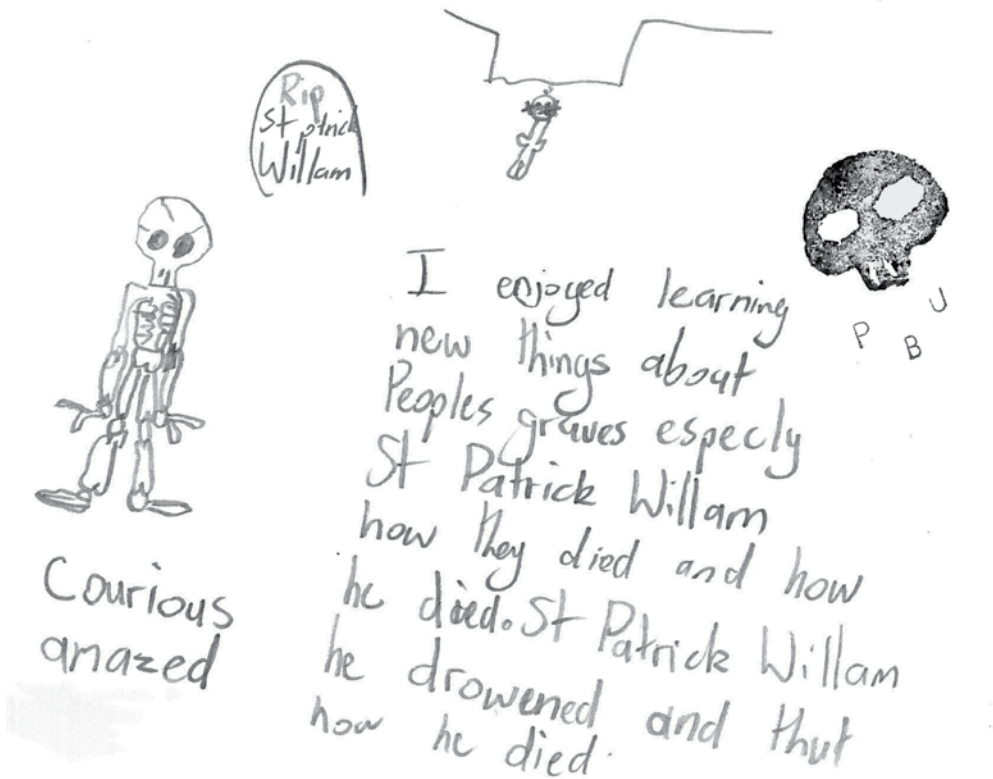 Rip
St ptrick
Willam
P B U
I enjoyed learning
new things about
Peoples graves especly
St Patrick Willam
how they died and how
he died. St Patrick Willam
he drowened and thut
how he died.
Courious
amazed